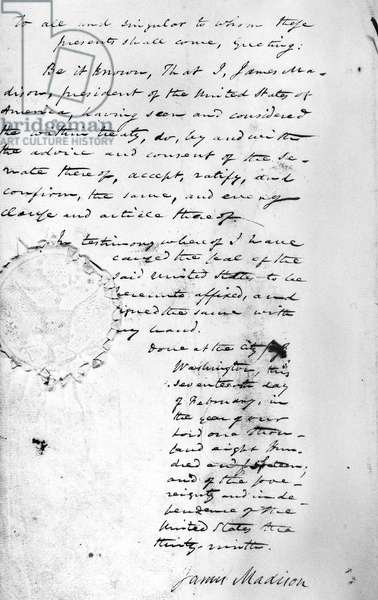 To all and singular to whom these
presents shall come, Greeting:
Be it known, That I, James Ma-
dison, president of the United States of
America, having seen and considered
the within treaty, do, by and with
the advice and consent of the se-
nate thereof, accept, ratify, and
confirm, the same, and every
clause and article thereof.
In testimony whereof I have
caused the seal of the
said United States to be
hereunto affixed, and
signed the same with
my hand.
Done at the City of
Washington, this
seventeenth day
of February, in
the year of our
Lord one thou-
sand eight hun-
dred and fifteen;
and of the sove-
reignty and inde-
pendence of the
United States the
thirty-ninth.
James Madison
bridgeman
ART CULTURE HISTORY